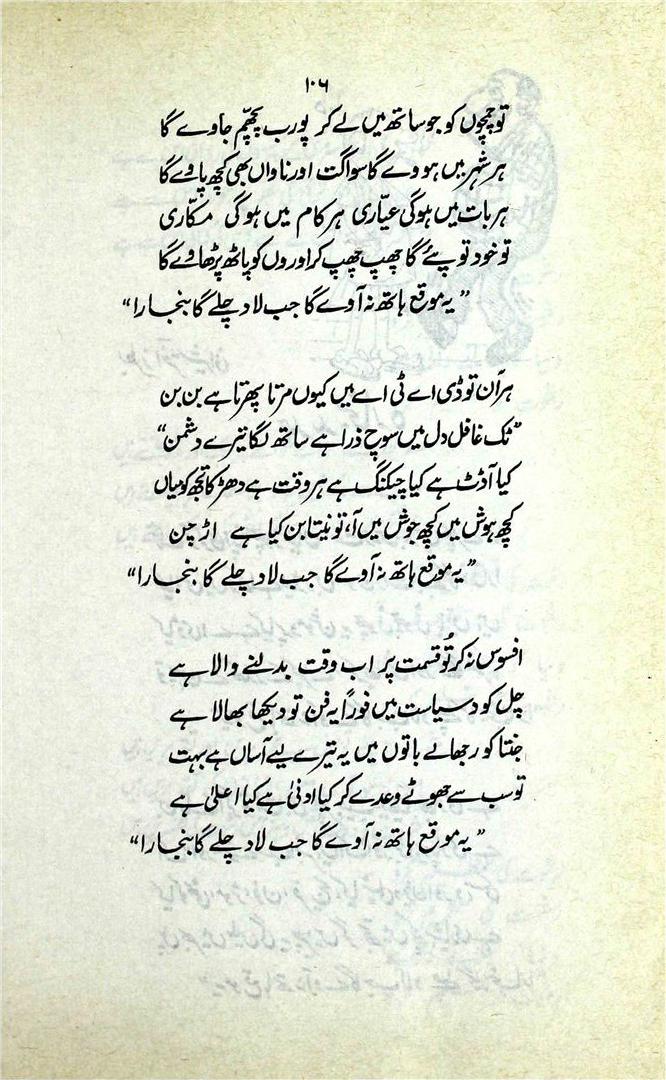 ۱۰۶
تو چمچوں کو جو ساتھ میں لے کر پورب پچھّم جاوے گا
ہر شہر میں ہووے گا سواگت اور ناواں بھی کچھ پاوے گا
ہر بات میں ہوگی عیّاری ہر کام میں ہوگی مکّاری
تو خود تو پئے گا چھپ چھپ کر اوروں کو پاٹھ پڑھاوے گا
"یہ موقع ہاتھ نہ آوے گا جب لاد چلے گا بنجارا"
ہر آن تو ڈی اے ٹی اے میں کیوں مرتا پھرتا ہے بن بن
"ٹک غافل دل میں سوچ ذرا ہے ساتھ لگا تیرے دشمن"
کیا آڈٹ ہے کیا چیکنگ ہے ہر وقت ہے دھڑکا تجھ کو میاں
کچھ ہوش میں کچھ جوش میں آ، تو نیتا بن کیا ہے اڑچن
"یہ موقع ہاتھ نہ آوے گا جب لاد چلے گا بنجارا"
افسوس نہ کر تُو قسمت پر اب وقت بدلنے والا ہے
چل کود سیاست میں فوراً یہ فن تو دیکھا بھالا ہے
جنتا کو رجھالے باتوں میں یہ تیرے لیے آساں ہے بہت
تو سب سے جھوٹے وعدے کر کیا ادنیٰ ہے کیا اعلیٰ ہے
"یہ موقع ہاتھ نہ آوے گا جب لاد چلے گا بنجارا"